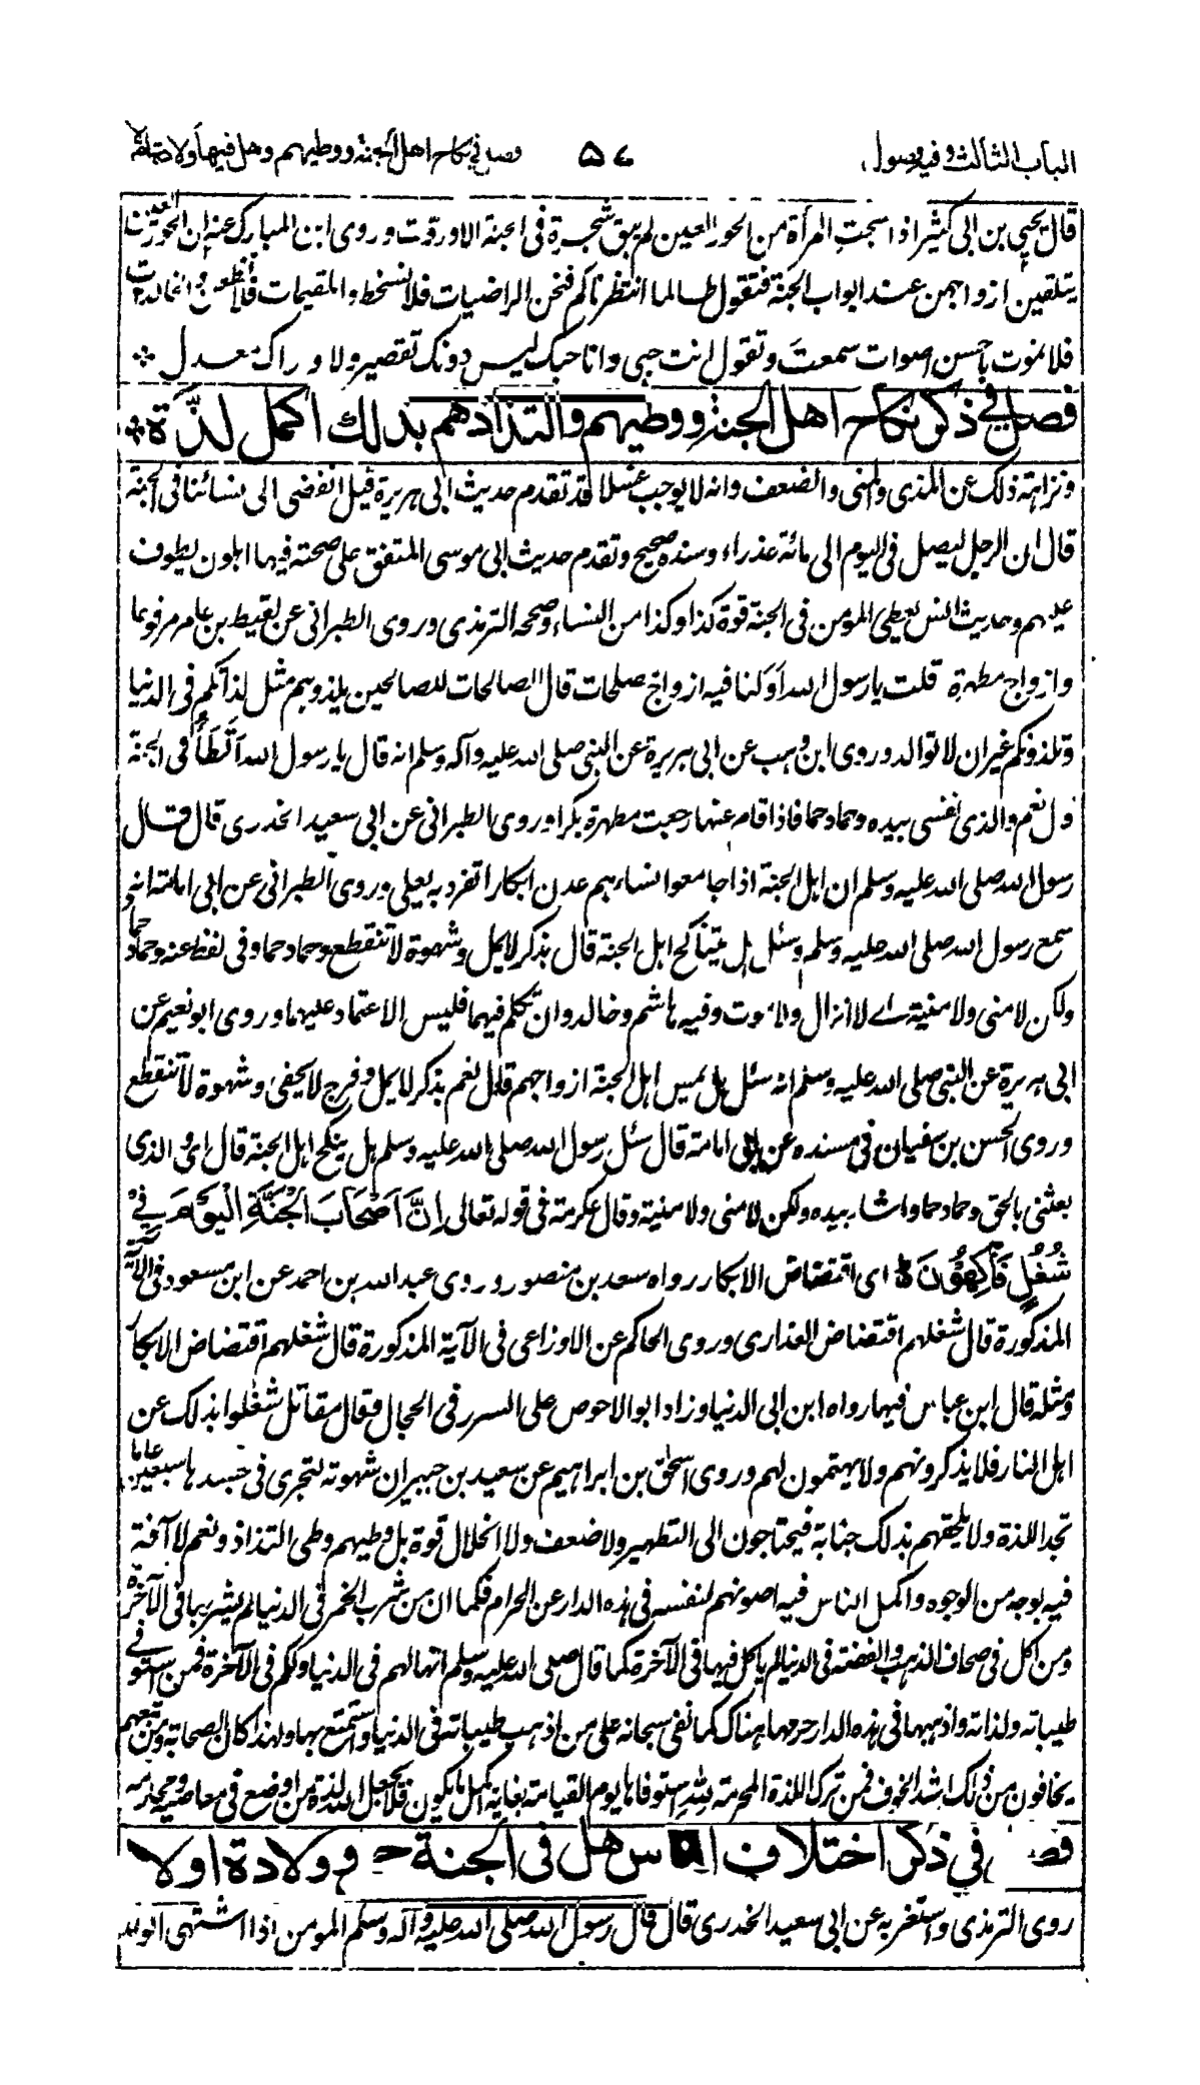 الباب الثالث وفيه فصول، ۵۷ فصل في نكاح اهل الجنة ووطيهم وهل فيها ولادة ام لا
قال يحيى بن ابى كثير اذا سبحت المرأة من الحور العين لم يبق شجرة فى الجنة الا وردت وروى ابن المبارك عنه ان الحور العين
يتلقين ازواجهن عند ابواب الجنة فتقول طالما انتظرناكم فنحن الراضيات فلا نسخط والمقيمات فلا نظعن والخالدات
فلا نموت باحسن اصوات سمعت وتقول انت حبى وانا حبك ليس دونك تقصير ولا وراك معدل
فصل في ذكر نكاح اهل الجنة ووطيهم والتذاذهم بذلك اكمل لذة
ونزاهة ذلك عن المذى والمنى والضعف وانه لا يوجب غسلا قد تقدم حديث ابى هريرة قيل انفضى الى نسائنا فى الجنة
قال ان الرجل ليصل فى اليوم الى مائة عذراء وسنده صحيح وتقدم حديث ابى موسى المتفق على صحته فيها اهلون يطوف
عليهم وحديث انس يعطى المؤمن فى الجنة قوة كذا وكذا من النساء وصححه الترمذى وروى الطبرانى عن لقيط بن عامر مرفوعا
وازواج مطهرة قلت يا رسول الله أوَلنا فيه ازواج صلحات قال الصالحات للصالحين يلذوبهم مثل لذاتكم فى الدنيا
وتلذونكم غير ان لا توالد وروى ابن وهب عن ابى هريرة عن النبى صلى الله عليه وآله وسلم انه قال يا رسول الله انطأ فى الجنة
قال نعم والذى نفسى بيده دحما دحما فاذا قام عنها رجعت مطهرة بكرا وروى الطبرانى عن ابى سعيد الخدرى قال قال
رسول الله صلى الله عليه وسلم ان اهل الجنة اذا جامعوا نساءهم عدن ابكارا تفرد به يعلى وروى الطبرانى عن ابى امامة انه
سمع رسول الله صلى الله عليه وسلم وسئل هل يتناكح اهل الجنة قال بذكر لا يمل وشهوة لا تنقطع دحما دحما وفى لفظ عنه دحما دحما
ولكن لا منى ولا منية اے لا انزال ولا موت وفيه هاشم وخالد وان تكلم فيهما فليس الاعتماد عليهما وروى ابو نعيم عن
ابى هريرة عن النبى صلى الله عليه وسلم انه سئل هل يمس اهل الجنة ازواجهم قال نعم بذكر لا يمل وفرج لا يحفى وشهوة لا تنقطع
وروى الحسن بن سفيان فى مسنده عن ابى امامة قال سئل رسول الله صلى الله عليه وسلم هل ينكح اهل الجنة قال اى والذى
بعثنى بالحق دحما دحما واشار بيده ولكن لا منى ولا منية وقال عكرمة فى قوله تعالى اِنَّ اَصْحَابَ الْجَنَّةِ الْيَوْمَ فِىْ
شُغُلٍ فَاكِهُوْنَ ط اى افتضاض الابكار رواه سعد بن منصور وروى عبد الله بن احمد عن ابن مسعود فى الآية
المذكورة قال شغلهم افتضاض العذارى وروى الحاكم عن الاوزاعى فى الآية المذكورة قال شغلهم افتضاض الابكار
ومثله قال ابن عباس فيما رواه ابن ابى الدنيا وزاد ابو الاحوص على السرر فى الحجال وقال مقاتل شغلوا بذلك عن
اهل النار فلا يذكرونهم ولا يهتمون لهم وروى اسحق بن ابراهيم عن سعيد بن جبير ان شهوته لتجرى فى جسدها سبعين عاما
تجد اللذة ولا يلحقهم بذلك جنابة فيحتاجون الى التطهير ولا ضعف ولا انحلال قوة بل وطيهم وطى التذاذ ونعم لا آفة
فيه بوجه من الوجوه واكمل الناس فيه اصونهم لنفسه فى هذه الدار عن الحرام فكما ان من شرب الخمر فى الدنيا لم يشربها فى الآخرة
ومن اكل فى صحاف الذهب والفضة فى الدنيا لم ياكل فيها فى الآخرة كما قال صلى الله عليه وسلم انها لهم فى الدنيا ولكم فى الآخرة فمن استوفى
طيباته ولذاته واذهبها فى هذه الدار حرمها هناك كما نفى سبحانه على من اذهب طيباته فى الدنيا واستمتع بها ولهذا كان الصحابة ومن تبعهم
يخافون من ذلك اشد الخوف فمن ترك اللذة المحرمة لله استوفاها يوم القيامة بغاية اكمل ما يكون فلا يجعل الله لذة من اوضع فى معاصيه ومحارمه
فصل في ذكر اختلاف الناس هل فى الجنة حمل وولادة او لا
روى الترمذى واستغربه عن ابى سعيد الخدرى قال قال رسول الله صلى الله عليه وآله وسلم المؤمن اذا اشتهى الولد